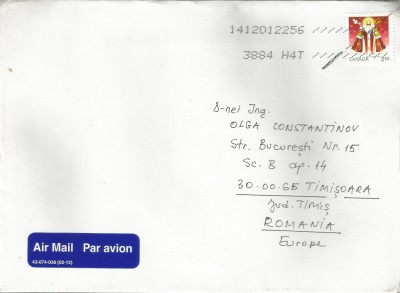 1412012256
3884 H4T
Canada
D-nei Ing.
OLGA CONSTANTINOV
Str. București Nr. 15
Sc. B ap. 14
30.00.65 TIMIȘOARA
Jud. TIMIȘ
ROMANIA
Europe
Air Mail Par avion
43-074-038 (02-12)